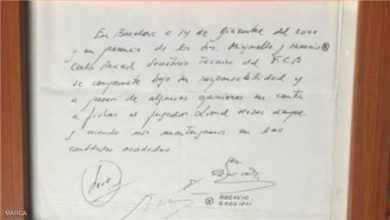 En Barcelona a 14 de diciembre del 2000
y en presencia de los Srs. Minguella y Horacio
Carles Rexach Secretario Técnico del F.C.B
se compromete bajo su responsabilidad y
a pesar de algunas opiniones en contra
a fichar al jugador Lionel Messi siempre
y cuando nos mantengamos en las
cantidades acordadas
HORACIO
GAGGIOLI
MARCA